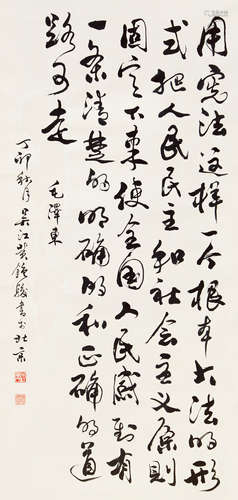 用宪法这样一个根本大法的形
式把人民民主和社会主义原则
固定下来使全国人民感到有
一条清楚的明确的和正确的道
路可走
毛泽东
丁卯秋月吴江贺钟骏书于北京